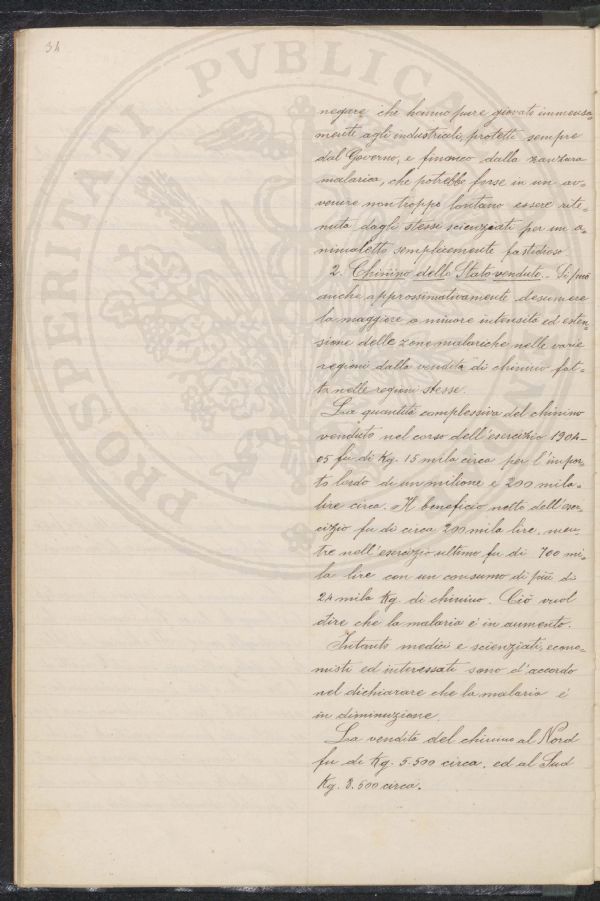 34
negare che hanno pure giovato immensa-
mente agli industriali, protetti sempre
dal Governo, e financo dalla zanzara
malarica, che potrebbe forse in un av-
venire non troppo lontano essere rite-
nuta dagli stessi scienziati per un a-
nimaletto semplicemente fastidioso
2. Chinino dello Stato venduto. - Si può
anche approssimativamente desumere
la maggiore o minore intensità ed esten-
sione delle zone malariche nelle varie
regioni dalla vendita di chinino fat-
ta nelle regioni stesse.
La quantità complessiva del chinino
venduto nel corso dell'esercizio 1904-
05 fu di Kg. 15 mila circa per l'impor-
to lordo di un milione e 200 mila
lire circa. Il beneficio netto dell'eser-
cizio fu di circa 200 mila lire, men-
tre nell'esercizio ultimo fu di 700 mi-
la lire con un consumo di più di
24 mila Kg. di chinino. Ciò vuol
dire che la malaria è in aumento.
Intanto medici e scienziati, econo-
misti ed interessati sono d'accordo
nel dichiarare che la malaria è
in diminuzione.
La vendita del chinino al Nord
fu di Kg. 5.500 circa, ed al Sud
Kg. 8.500 circa.
PROSPERITATI PVBLICAE